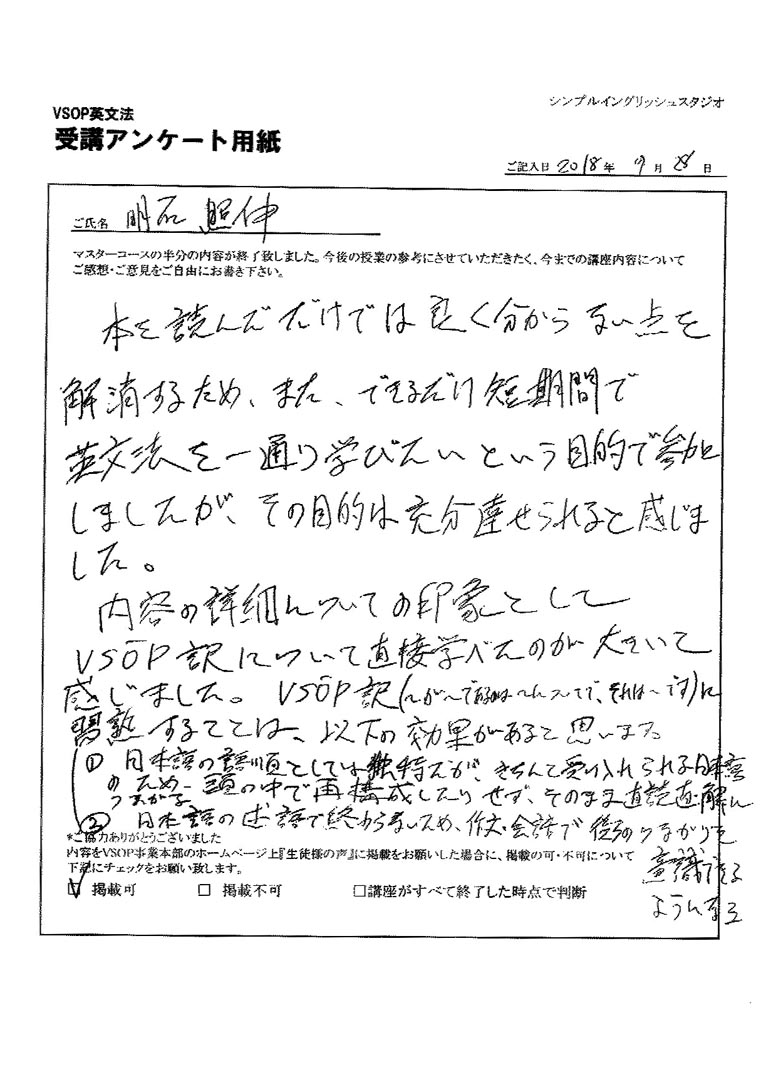 シンプルイングリッシュスタジオ
VSOP英文法
受講アンケート用紙
ご記入日 2018年 9月 28日
ご氏名 明石 照伸
マスターコースの半分の内容が終了致しました。今後の授業の参考にさせていただきたく、今までの講座内容について
ご感想・ご意見をご自由にお書き下さい。
本を読んだだけでは良く分からない点を
解消するため、また、できるだけ短期間で
英文法を一通り学びたいという目的で参加
しましたが、その目的は充分達せられると感じま
した。
内容の詳細についての印象として
VSOP訳について直接学べたのが大きいと
感じました。VSOP訳(〜が〜であるのは〜について、それは〜です)に
習熟することは、以下の効果があると思います。
① 日本語の語順としては独特だが、きちんと受け入れられる日本語
のため、頭の中で再構成したりせず、そのまま直読直解に
つながる
② 日本語の述語で終わらないため、作文・会話で後ろのつながりを
意識できる
ようになる
*ご協力ありがとうございました
内容をVSOP事業本部のホームページ上『生徒様の声』に掲載をお願いした場合に、掲載の可・不可について
下記にチェックをお願い致します。
☑ 掲載可 □ 掲載不可 □講座がすべて終了した時点で判断